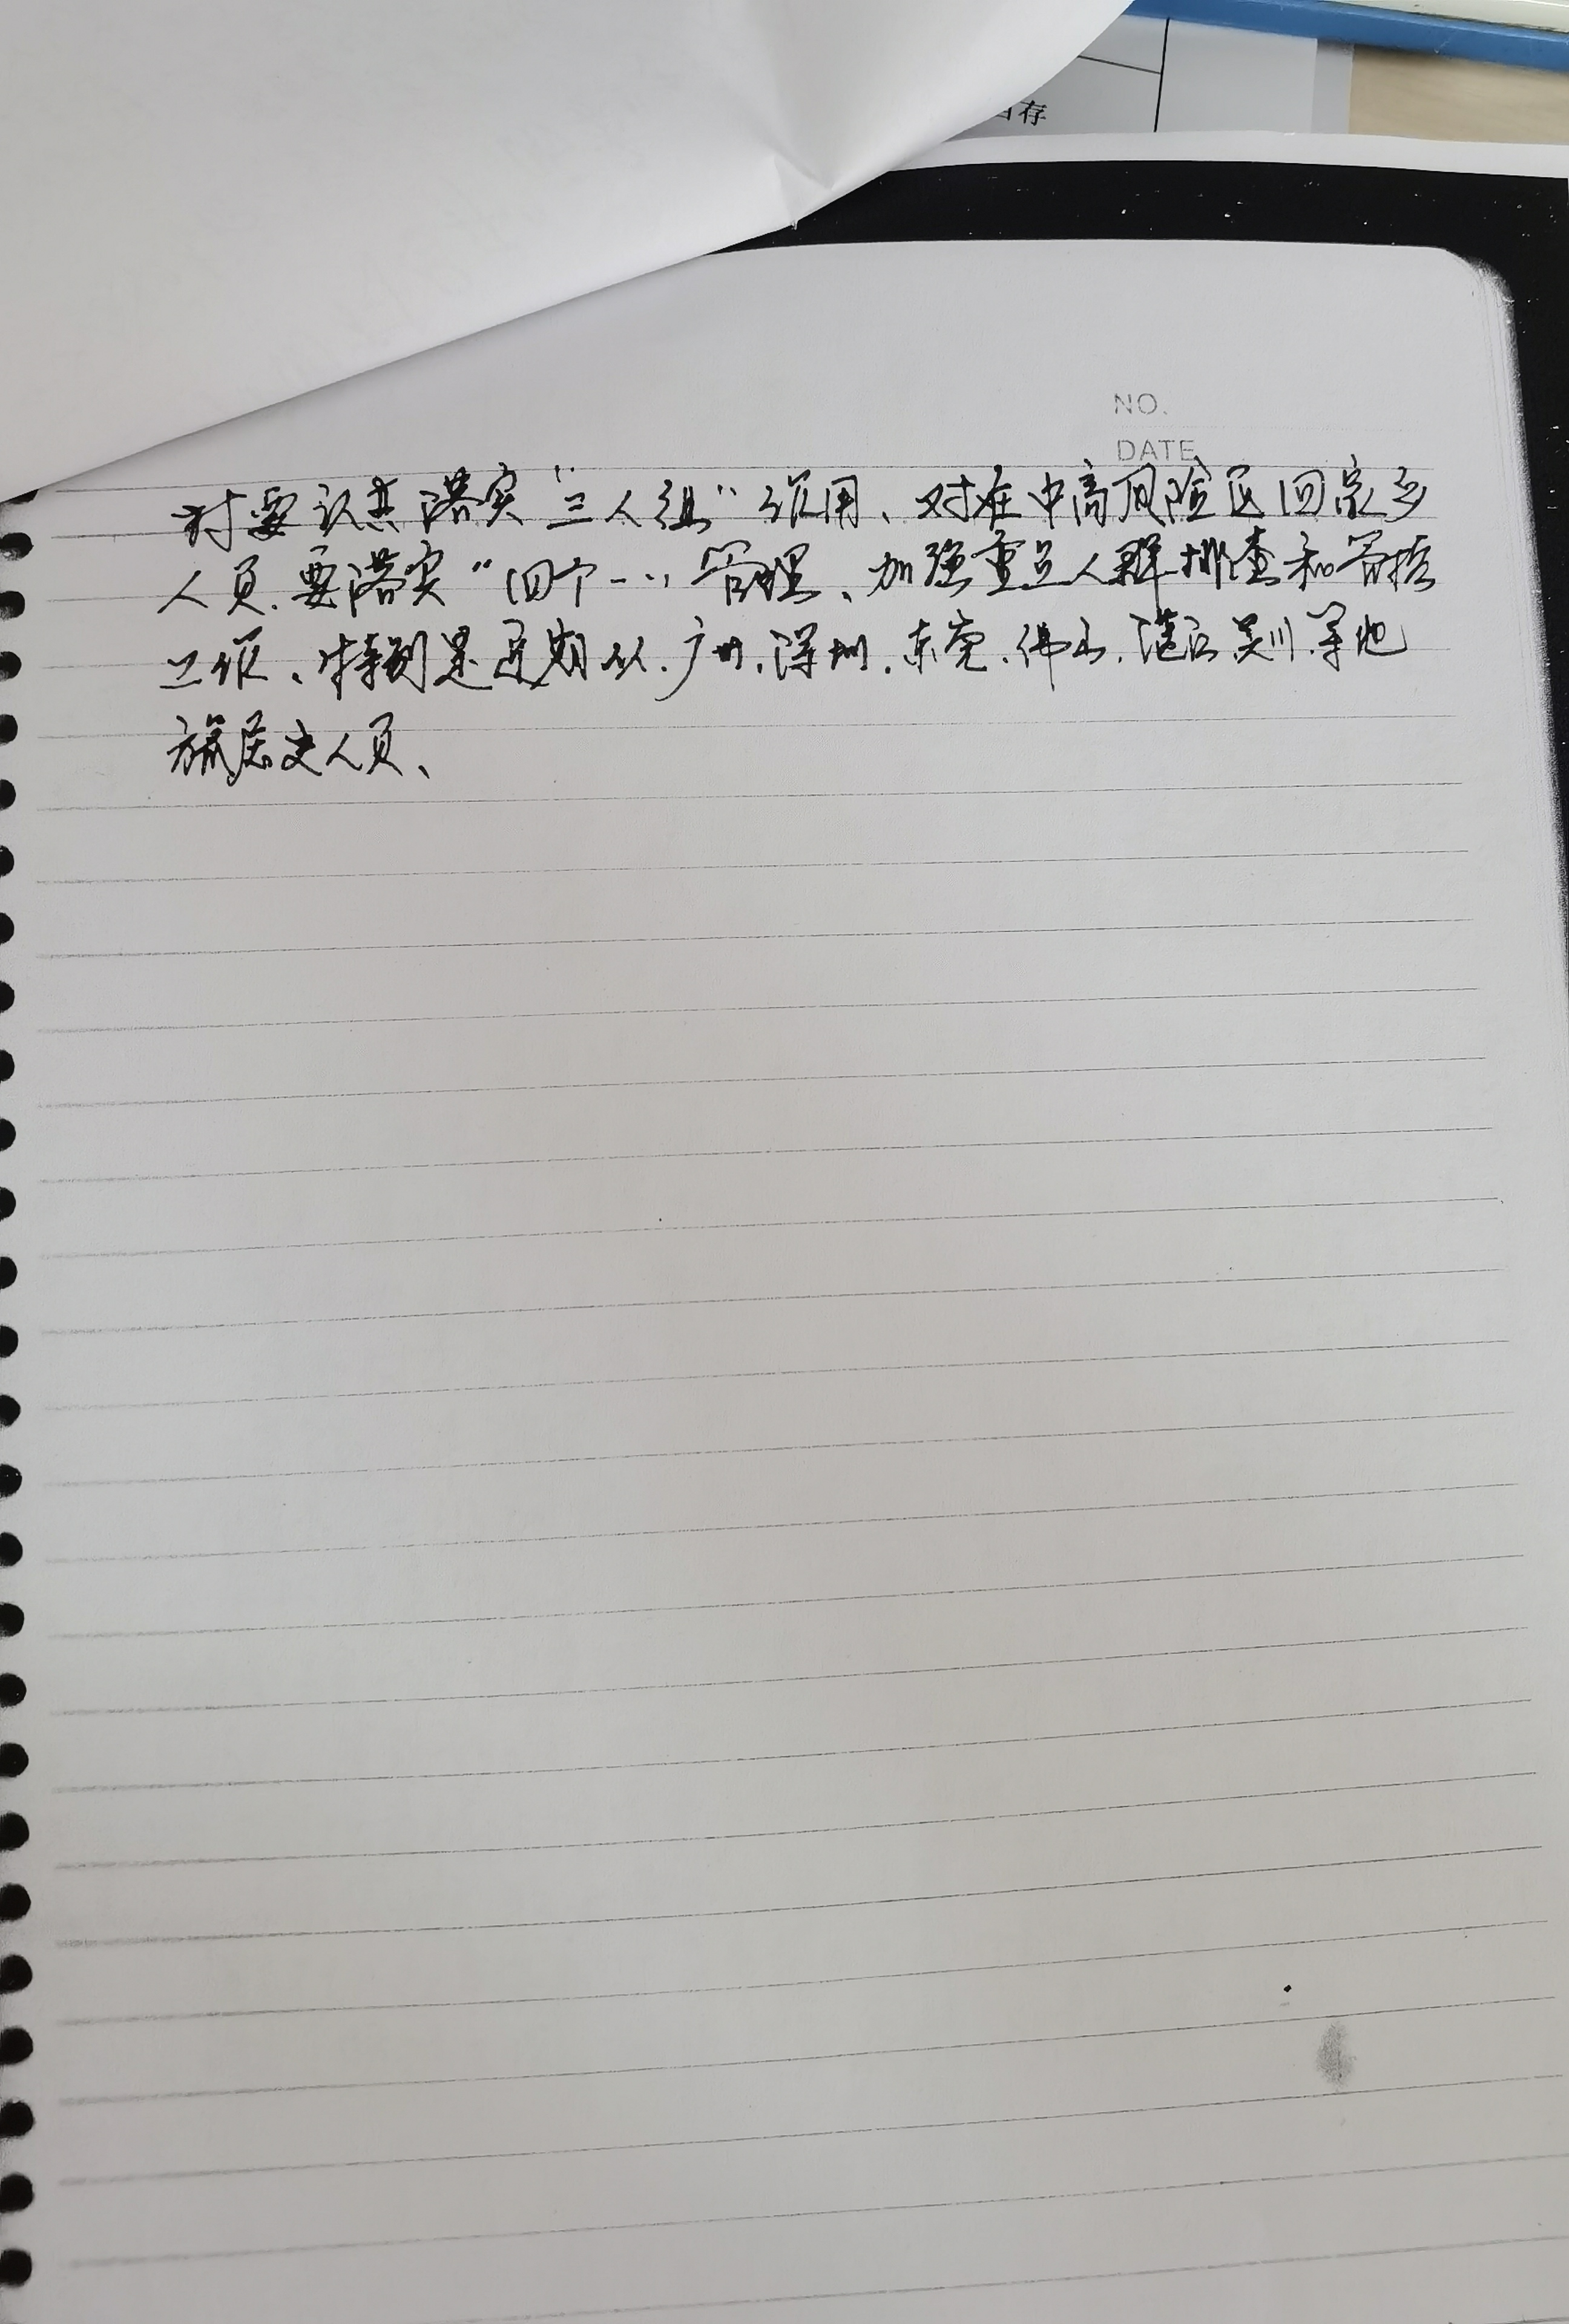 存
NO.
DATE
村要认真落实“三人组”作用、对在中高风险区回家乡
人员.要落实“四个一”管理、加强重点人群排查和管控
工作、特别是近期从.广州.深圳.东莞.佛山.湛江吴川.等地
旅居史人员、